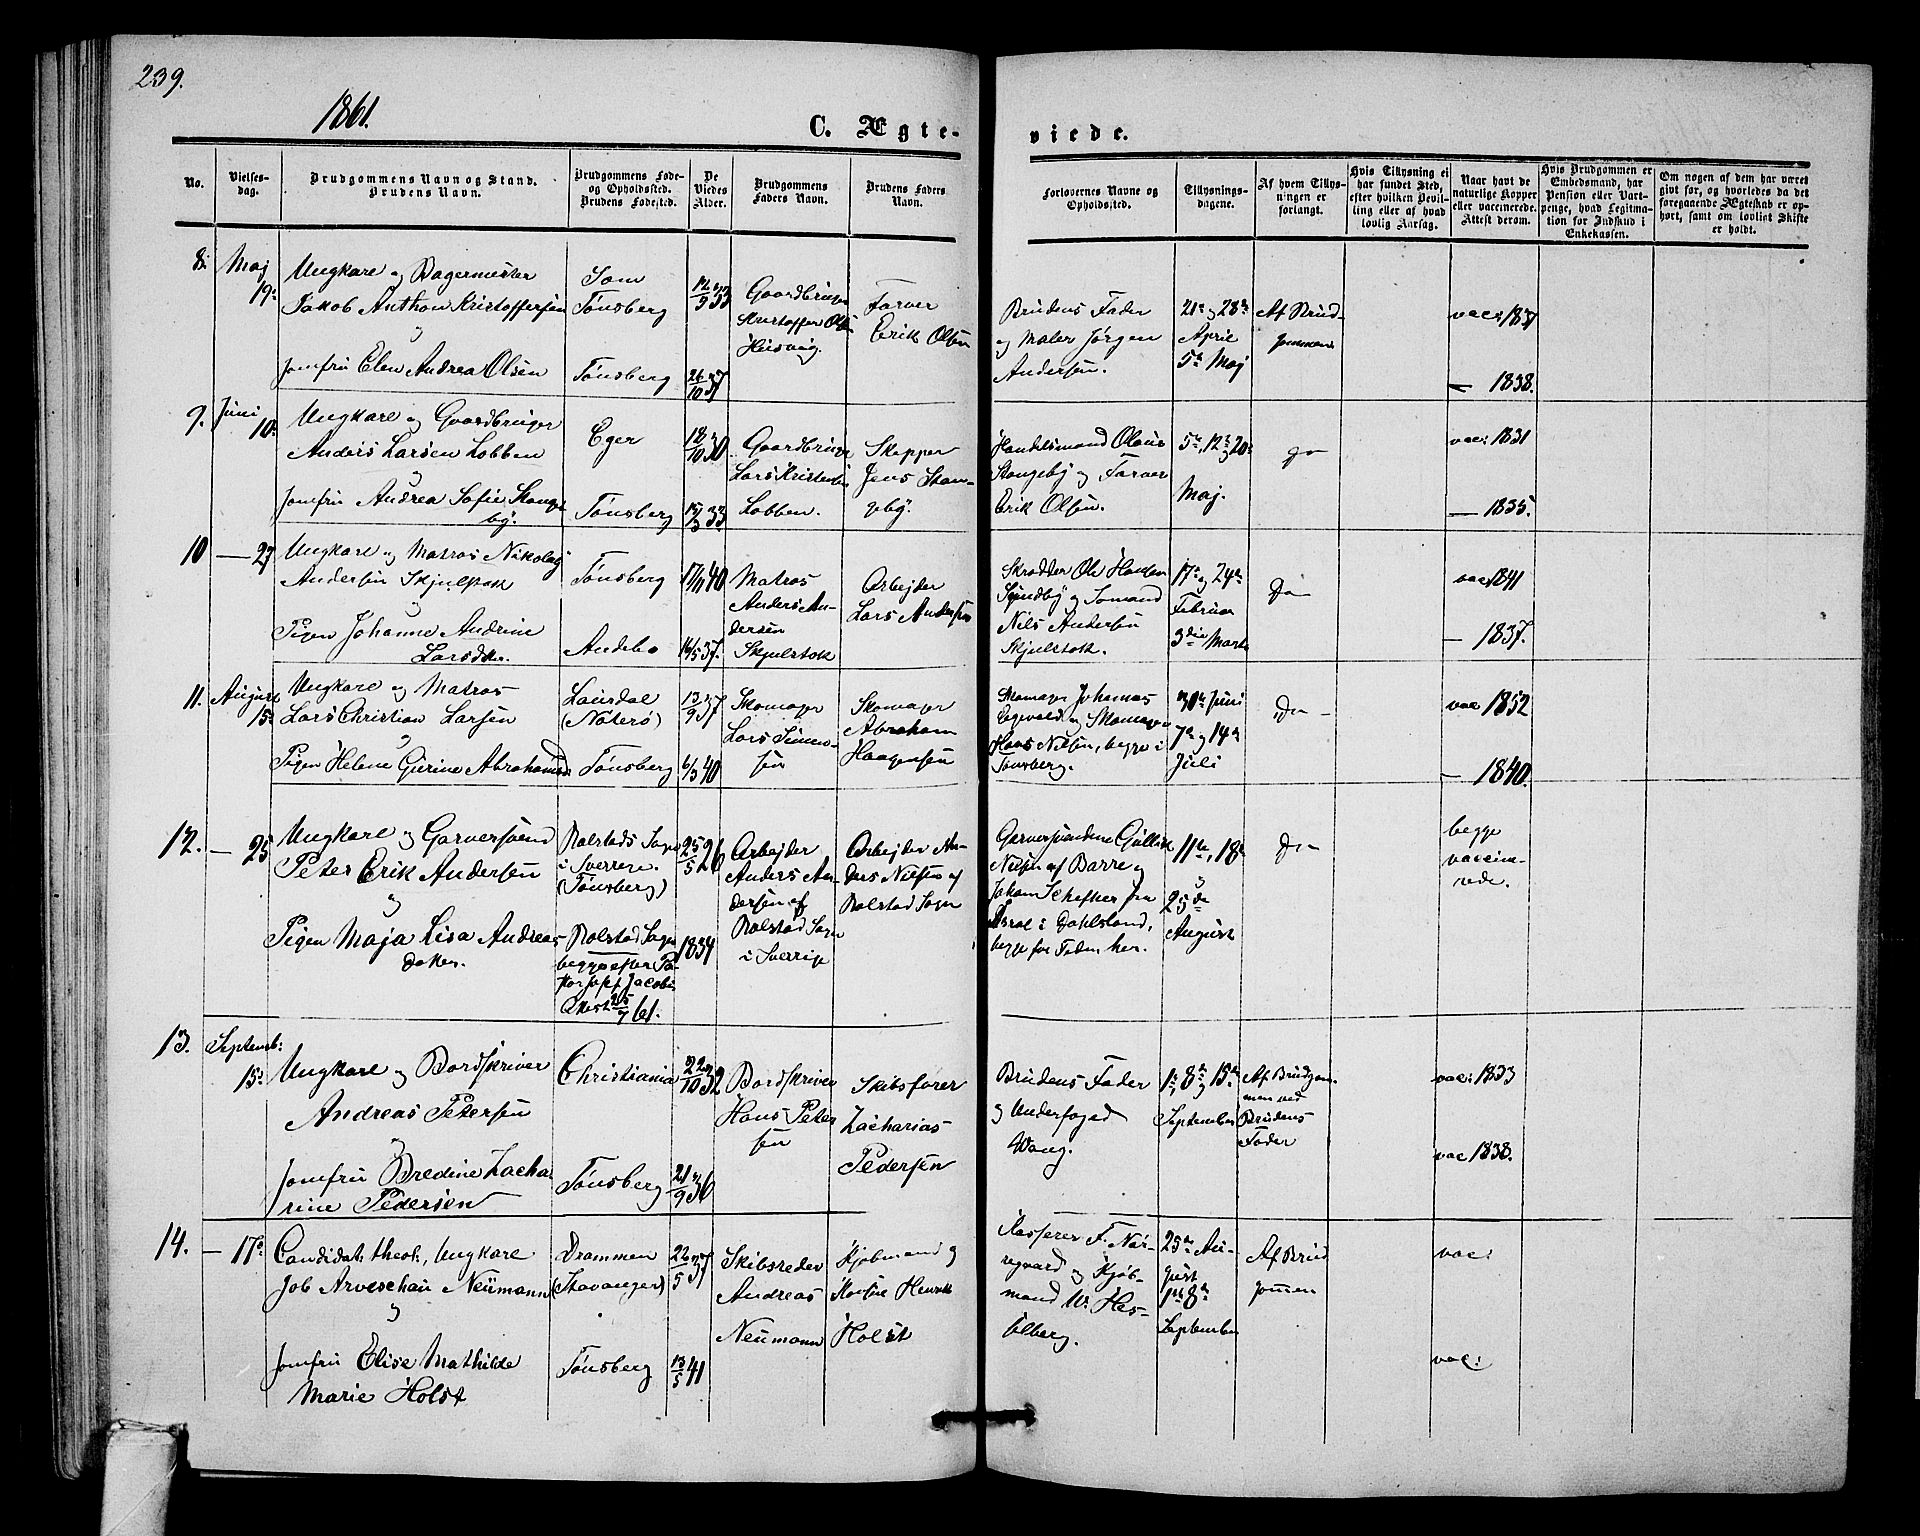 239.
1861.
C. Ægte-
viede.
No.
Vielses-
dag.
Brudgommens Navn og Stand.
Brudens Navn.
Brudgommens Føde-
og Opholdssted.
Brudens Fødested.
De
Viedes
Alder.
Brudgommens
Faders Navn.
Brudens Faders
Navn.
Forlovernes Navne og
Opholdssted.
Tillysnings-
dagene.
Af hvem Tillys-
ningen er
forlangt.
Hvis Tillysning ei
har fundet Sted,
efter hvilken Bevil-
ling eller af hvad
lovlig Aarsag.
Naar havt de
naturlige Kopper
eller vaccinerede.
Attest derom.
Hvis Brudgommen er
Embedsmand, har
Pension eller Vart-
penge, hvad Legitima-
tion for Indskud i
Enkekassen.
Om nogen af dem har været
givt før, og hvorledes da det
foregaaende Ægteskab er op-
hørt, samt om lovligt Skifte
er holdt.
8. Maj
19
Ungkare og Bagermester
Jakob Anthon Kristoffersen
og
Jomfru Elen Andrea Olsen
Sem
Tønsberg
Tønsberg
12/5 33
26/10 37
Gaardbruger
Kristoffer
Farver
Erik Olsen
Brudens Fader
og Maler Jørgen
Andersen.
21de og 28de
April
5te Maj
Af Brud-
gommen
vac: 1837
— 1838.
9. Juni
10
Ungkare og Gaardbruger
Anders Larsen Lobben
Jomfru Andrea Sofie Stange-
by.
Eger
Tønsberg
18/10 30
15/3 33
Gaardbruger
Lars Kristensen
Lobben.
Skipper
Jens Stan-
geby.
Handelsmand Olaus
Stangeby og Farver
Erik Olsen.
5te, 12te og 20de
Maj.
do
vac: 1831
— 1835.
10 — 27
Ungkare og Matros Nikolaj
Andersen Skjulstok
og
Pigen Johanne Andrine
Larsdtter.
Tønsberg
Andebo
17/11 40
16/5 37.
Matros
Anders An-
dersen
Skjulstok
Arbejder
Lars Andersen
Skrædder Ole Hansen
Søndby og Sømand
Nils Andersen
Skjulstok.
17de og 24de
Februar
3die Marts
Do
vac 1841
— 1837.
11. August
15
Ungkare og Matros
Lars Christian Larsen
og
Pigen Helene Gurine Abrahamsd.
(Nøterø)
Tønsberg
13/9 37
6/3 40
Skomager
Lars Simen-
sen
Skomager
Abraham
Haagensen
Skomager Johannes
og Skomager
Hans Nilsen, begge i
Tønsberg.
30te Juni
7de og 14de
Juli
Do
vac 1852
— 1840.
12. — 25
Ungkare og Garversvend
Peter Erik Andersen
og
Pigen Maja Lisa Andreas-
datter.
Rolstads Sogn
i Sverrige.
(Tønsberg)
Rolstad Sogn
begge efter Pa-
stor Jacobi
Attest 25/7 61.
25/5 26
1834
Arbejder
Anders An-
dersen af
Rolstad Sogn
i Sverrige
Arbejder An-
ders Nilsen af
Rolstad Sogn
Garversvendene
Nilsen af Barre og
Johan Schefter fra
i Dahlsland,
begge for Tiden her.
11te, 18de
og
25de
August
Do
begge
vaccine-
rede.
13. Septemb:
15
Ungkare og Bordskriver
Andreas Petersen
og
Jomfru Bredine Zacha-
rine Pedersen
Christiania
Tønsberg
22/10 32
21/9 36
Bordskriver
Hans Peter-
sen
Skibsfører
Zacharias
Pedersen
Brudens Fader
og Underfoged
Wang.
1ste, 8de og 15de
September
Af Brudgom-
men ved
Brudens
Fader
vac: 1833
vac 1838.
14. — 17
Candidat. theol., Ungkare
Job Arveschau Neumann
og
Jomfru Elise Mathilde
Marie Holst
Drammen
(Stavanger)
Tønsberg
22/5 37
13/5 41
Skibsreder
Andreas
Neumann
Kjøbmand og
Konsul Henrik
Holst
Kasserer F. Nør-
regaard og Kjøb-
mand W. Hes-
selberg.
25de Au-
gust
1ste 8de
September
Af Brud-
gommen
vac:
vac: